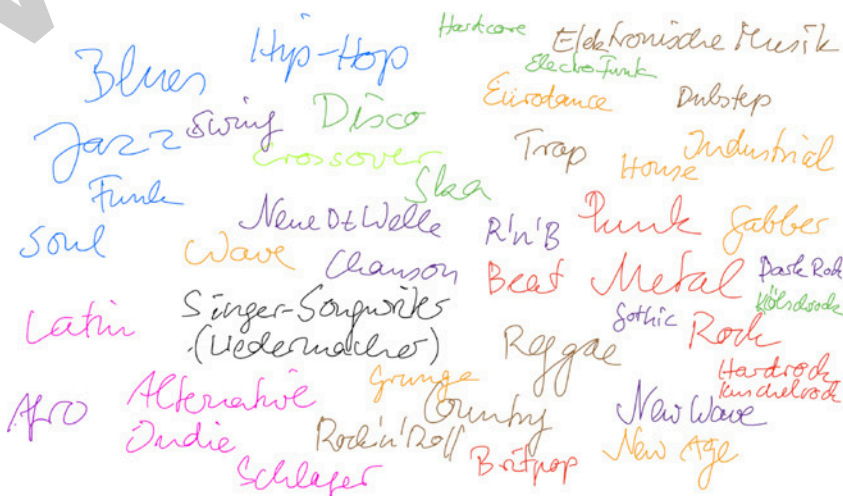 Hardcore
Hip-Hop
Elektronische Musik
Blues
Electrofunk
Eurodance
Dubstep
Swing
Disco
Jazz
Crossover
Trap
House
Industrial
Funk
Ska
Neue Dt Welle
R'n'B
Punk
Gabber
Soul
Wave
Chanson
Beat
Metal
Dark Rock
Kölschrock
Latin
Singer-Songwriter
(Liedermacher)
Gothic
Rock
Reggae
Hardrock
Kuschelrock
Afro
Alternative
Grunge
Country
New Wave
Indie
Rock'n'Roll
Britpop
New Age
Schlager